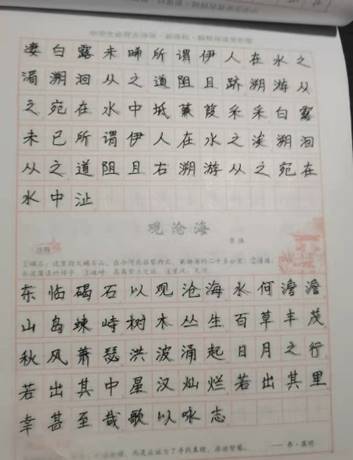 凄白露未晞所谓伊人在水之
湄溯洄从之道阻且跻溯游从
之宛在水中坻蒹葭采采白露
未已所谓伊人在水之涘溯洄
从之道阻且右溯游从之宛在
水中沚
观沧海
东临碣石以观沧海水何澹澹
山岛竦峙树木丛生百草丰茂
秋风萧瑟洪波涌起日月之行
若出其中星汉灿烂若出其里
幸甚至哉歌以咏志